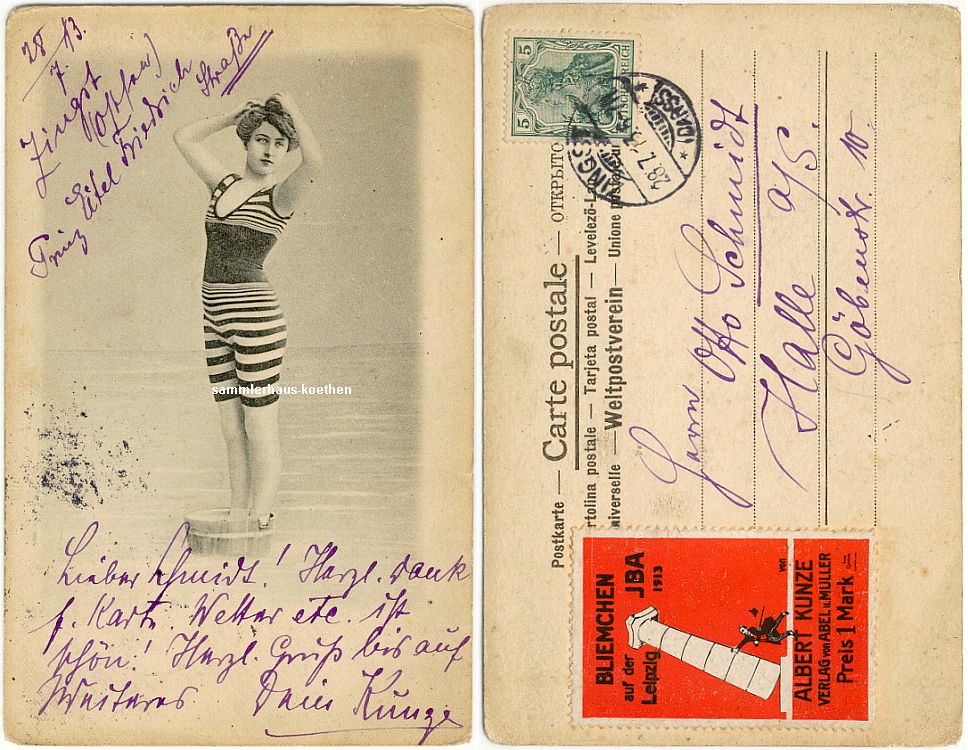 28/7. 13.
Zingst
(Ostsee)
Prinz Eitel Friedrich
Straße
sammlerhaus-koethen
Lieber Schmidt! Herzl. Dank
f. Karte. Wetter etc. ist
schön! Herzl. Gruß bis auf
Weiteres Dein Kunze
5 5
DEUTSCHES REICH
ZINGST
(DARSS)
28.7.13
Postkarte — Carte postale — ОТКРЫТО
Cartolina postale — Tarjeta postal — Levelező-L
Universelle — Weltpostverein — Unione postale
Herrn Otto Schmidt
Halle a/S.
Göbenstr. 10.
BLIEMCHEN
auf der JBA
Leipzig 1913
von
ALBERT KUNZE
VERLAG von ABEL u. MÜLLER
Preis 1 Mark